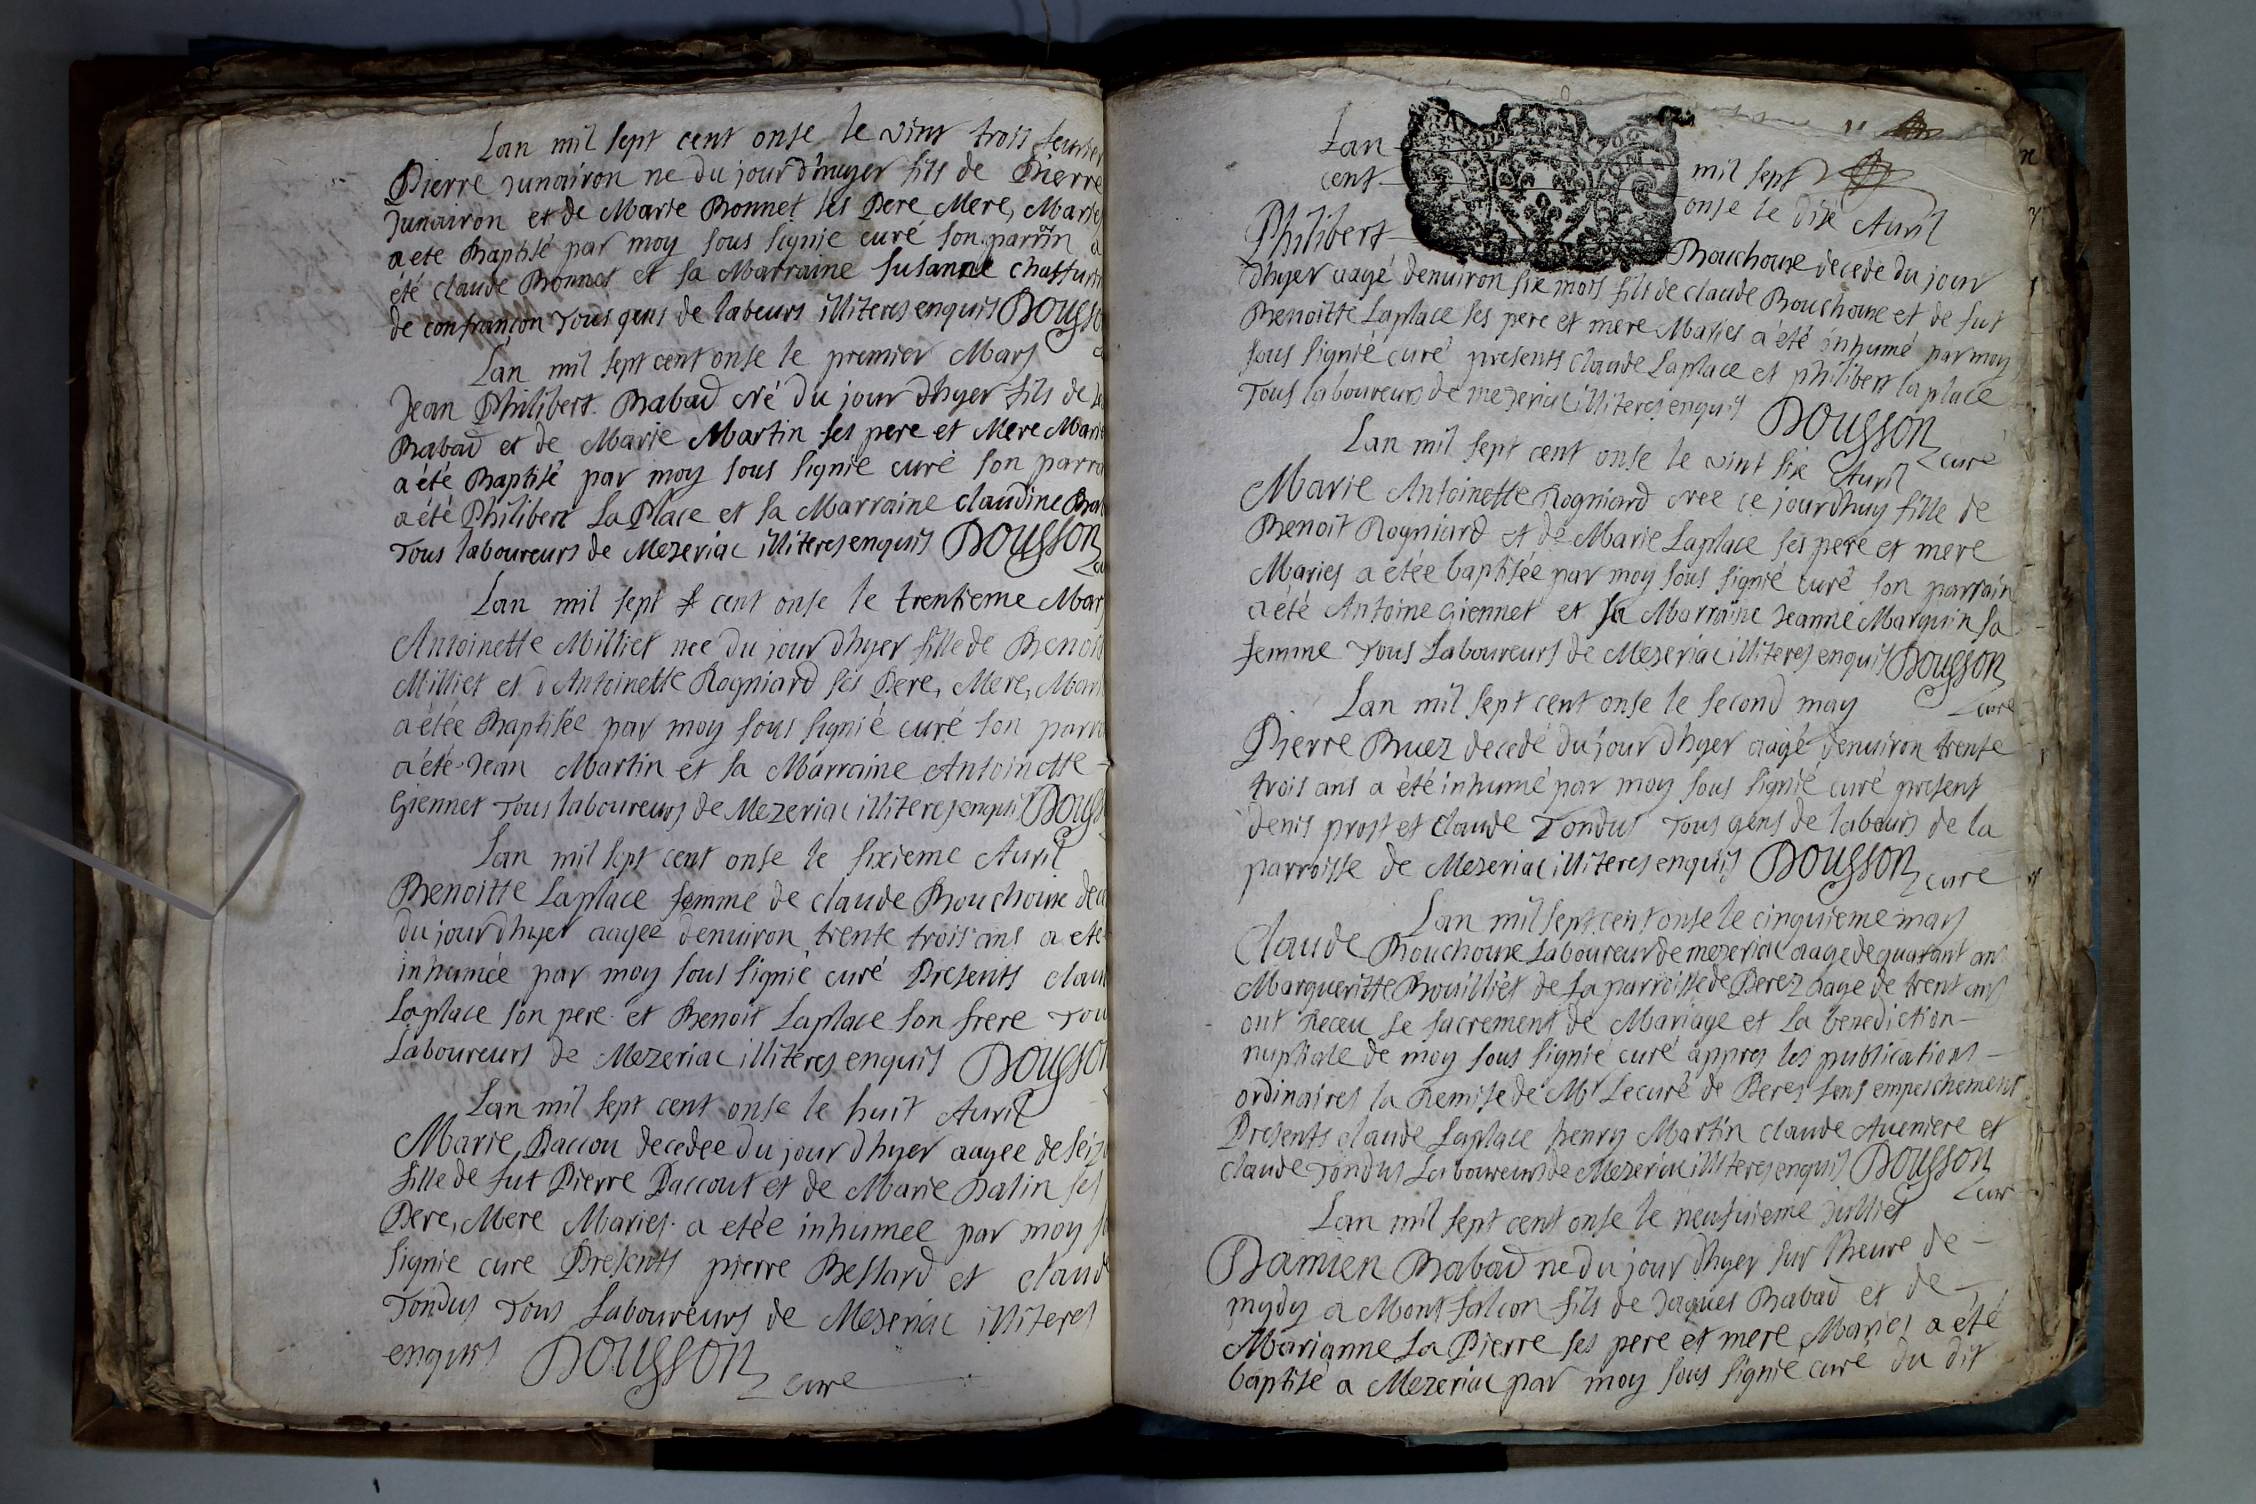 Lan mil sept cent onse le vint trois feurier
Pierre Junairon ne du jour d'huyer fils de Pierre
Junairon et de Marie Bonnet ses Pere Mere, Maries
a eté Baptisé par moy sous signié curé son parrin a
été claude Bonnet et sa Marraine Susanne
de confrançon Tous gens de labeurs illiteres enquis Dousson
Lan mil sept cent onse le premier Mars
Jean Philibert Babad né du jour dhyer fils de
Babad et de Marie Martin ses pere et Mere Maries
a été Baptisé par moy sous signié curé son parra
a été Philibert La Place et sa Marraine claudine Bab
Tous laboureurs de Mezeriac illiteres enquis Dousson
Lan mil sept cent onse le trentieme Mars
Antoinette Milliet nee du jour dhyer fille de Benoit
Milliet et dAntoinette Rogniard ses Pere, Mere, Mari
a étée Baptisée par moy sous signié curé son parra
a été Jean Martin et sa Marraine Antoinette
Giennet Tous laboureurs de Mezeriac illiteres enquis Douss
Lan mil sept cent onse le sixieme Auril
Benoitte Laplace femme de claude Bouchoux dece
du jour dhyer aagée denuiron trente trois ans a eté
inhumée par moy sous signié curé Presents clau
Laplace son pere et Benoit Laplace son frere Tou
Laboureurs de Mezeriac illiteres enquis Dousson
Lan mil sept cent onse le huit Auril
Marie Paccou decedee du jour dhyer aagee de seiz
fille de fut Pierre Paccout et de Marie Balin ses
Pere, Mere Maries a etée inhumee par moy so
signie cure Presents pierre Bessard et claude
Tondus Tous Laboureurs de Mezeriac illiteres
enquis Dousson curé
Lan mil sept
cent onse le dix Auril
Philibert Bouchoux decede du jour
dhyer aagé denuiron six mois fils de claude Bouchoux et de fut
Benoitte Laplace ses pere et mere Maries a été inhumé par moy
sous signié curé presents claude Laplace et philibert laplace
Tous laboureurs de mezeriac illiteres enquis Dousson curé
Lan mil sept cent onse le vint six Auril
Marie Antoinette Rogniard nee ce jourdhuy fille de
Benoit Rogniard et de Marie Laplace ses pere et mere
Maries a étée baptisée par moy sous signié curé son parrain
a été Antoine Giennet et sa Marraine Jeanne Marguin sa
femme Tous Laboureurs de Mezeriac illiteres enquis Dousson
curé
Lan mil sept cent onse le second may
Pierre Bruez decedé du jour dhyer aagé denuiron trente
trois ans a été inhumé par moy sous signié curé present
denis prost et claude Tondus Tous gens de labeurs de la
parroisse de Mezeriac illiteres enquis Dousson curé
Lan mil sept cent onse le cinquieme may
Claude Bouchoux Laboureur de mezeriac aagé de quarant ans
Margueritte Bouilliet de la parroisse de Perez aage de trent ans
ont Receu le sacrement de Mariage et la benediction
nuptiale de moy sous signié curé appres les publications
ordinaires la Remise de Mr Le curé de Peres sens empeschement
Presents claude Laplace henry Martin claude Aueniere et
claude Tondus Laboureurs de Mezeriac illiteres enquis Dousson
curé
Lan mil sept cent onse le neufuieme juilliet
Damien Babad ne du jour dhyer sur lheure de
mydy a Montfalcon fils de Jaques Babad et de
Marianne La Pierre ses pere et mere Maries a été
baptisé a Mezeriac par moy sous signié curé du dit